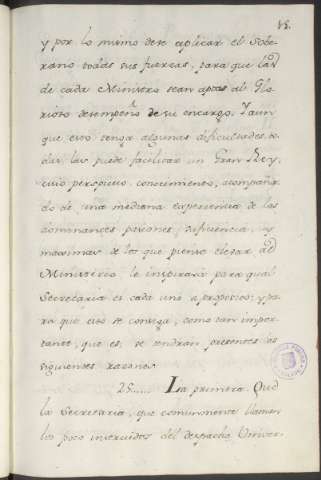 15.
y por lo mismo debe aplicar el Sobe-
rano todas sus fuerzas, para que las
de cada Ministro sean aptas al Glo-
rioso desempeño de su encargo. Y aun
que esto tenga algunas dificultades, to-
das las puede facilitar un Gran Rey,
cuio perspicuo conocimiento, acompaña-
do de una mediana experiencia de las
dominantes pasiones, influencia, y
maximas de los que piense elevar al
Ministerio, le inspirará para qual
Secretaria es cada uno a proposito; y pa-
ra que esto se consiga, como tan impor-
tante, que es, se tendran presentes las
siguientes razones.
25...... La primera. Que
la Secretaria, que comunmente llaman
los poco instruidos del despacho Univer-